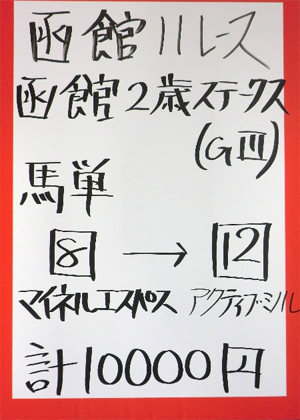 函館11レース
函館2歳ステークス
(GIII)
馬単
8 → 12
マイネルエスパス アクティブ・ミル
計10000円